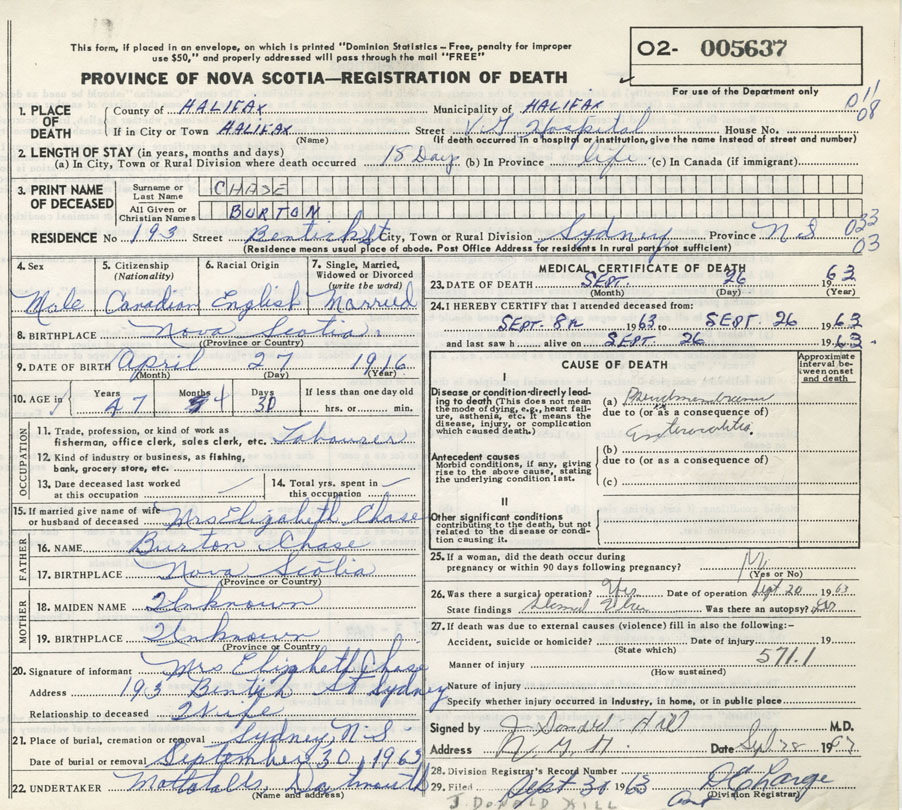 This form, if placed in an envelope, on which is printed "Dominion Statistics – Free, penalty for improper
use $50," and properly addressed will pass through the mail "FREE"
O2- 005637
PROVINCE OF NOVA SCOTIA—REGISTRATION OF DEATH
For use of the Department only
011
08
1. PLACE OF DEATH County of HALIFAX Municipality of HALIFAX
If in City or Town HALIFAX Street V.G. Hospital House No.
(Name) (If death occurred in a hospital or institution, give the name instead of street and number)
2. LENGTH OF STAY (in years, months and days)
(a) In City, Town or Rural Division where death occurred 18 Day (b) In Province life (c) In Canada (if immigrant)
3. PRINT NAME OF DECEASED Surname or Last Name CHASE
All Given or Christian Names BURTON
RESIDENCE No 193 Street Bentick St City, Town or Rural Division Sydney Province N S 033
03
(Residence means usual place of abode. Post Office Address for residents in rural parts not sufficient)
4. Sex 5. Citizenship (Nationality) 6. Racial Origin 7. Single, Married, Widowed or Divorced (write the word)
Male Canadian English Married
8. BIRTHPLACE Nova Scotia
(Province or Country)
9. DATE OF BIRTH April 27 1916
(Month) (Day) (Year)
10. AGE in Years Months Days If less than one day old
47 4 30 hrs. or min.
OCCUPATION
11. Trade, profession, or kind of work as
fisherman, office clerk, sales clerk, etc. Labourer
12. Kind of industry or business, as fishing,
bank, grocery store, etc.
13. Date deceased last worked at this occupation 14. Total yrs. spent in this occupation
15. If married give name of wife
or husband of deceased Mrs Elizabeth Chase
FATHER
16. NAME Burton Chase
17. BIRTHPLACE Nova Scotia
(Province or Country)
MOTHER
18. MAIDEN NAME Unknown
19. BIRTHPLACE Unknown
(Province or Country)
20. Signature of informant Mrs Elizabeth Chase
Address 193 Bentick St Sydney
Relationship to deceased Wife
21. Place of burial, cremation or removal Sydney, N.S.
Date of burial or removal September 30, 1963
22. UNDERTAKER Mattatalls, Dartmouth
(Name and address)
MEDICAL CERTIFICATE OF DEATH
23. DATE OF DEATH SEPT. 26 1963
(Month) (Day) (Year)
24. I HEREBY CERTIFY that I attended deceased from:
SEPT. 8 1963 to SEPT. 26 1963
and last saw h alive on SEPT. 26 1963
CAUSE OF DEATH
Approximate interval between onset and death
I
Disease or condition directly leading to death (This does not mean the mode of dying, e.g., heart failure, asthenia, etc. It means the disease, injury, or complication which caused death.)
(a) Pseudomembranous
due to (or as a consequence of)
Enterocolitis
Antecedent causes
Morbid conditions, if any, giving rise to the above cause, stating the underlying condition last.
(b)
due to (or as a consequence of)
(c)
II
Other significant conditions
contributing to the death, but not related to the disease or condition causing it.
25. If a woman, did the death occur during
pregnancy or within 90 days following pregnancy?
(Yes or No)
26. Was there a surgical operation? Yes Date of operation Sept 20 1963
State findings Was there an autopsy?
27. If death was due to external causes (violence) fill in also the following:-
Accident, suicide or homicide? Date of injury 19
(State which)
571.1
Manner of injury
(How sustained)
Nature of injury
Specify whether injury occurred in Industry, in home, or in public place
Signed by J Donald Hill M.D.
Address V.G.H. Date Sept 28 1963
28. Division Registrar's Record Number
29. Filed Sept 30 1963
(Division Registrar)
J DONALD HILL